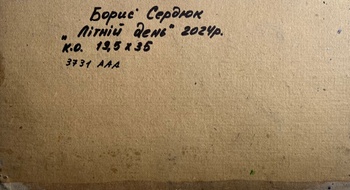 Борис Сердюк
„Літній день" 2024р.
к.о. 13,5 х 35
3731 ААА